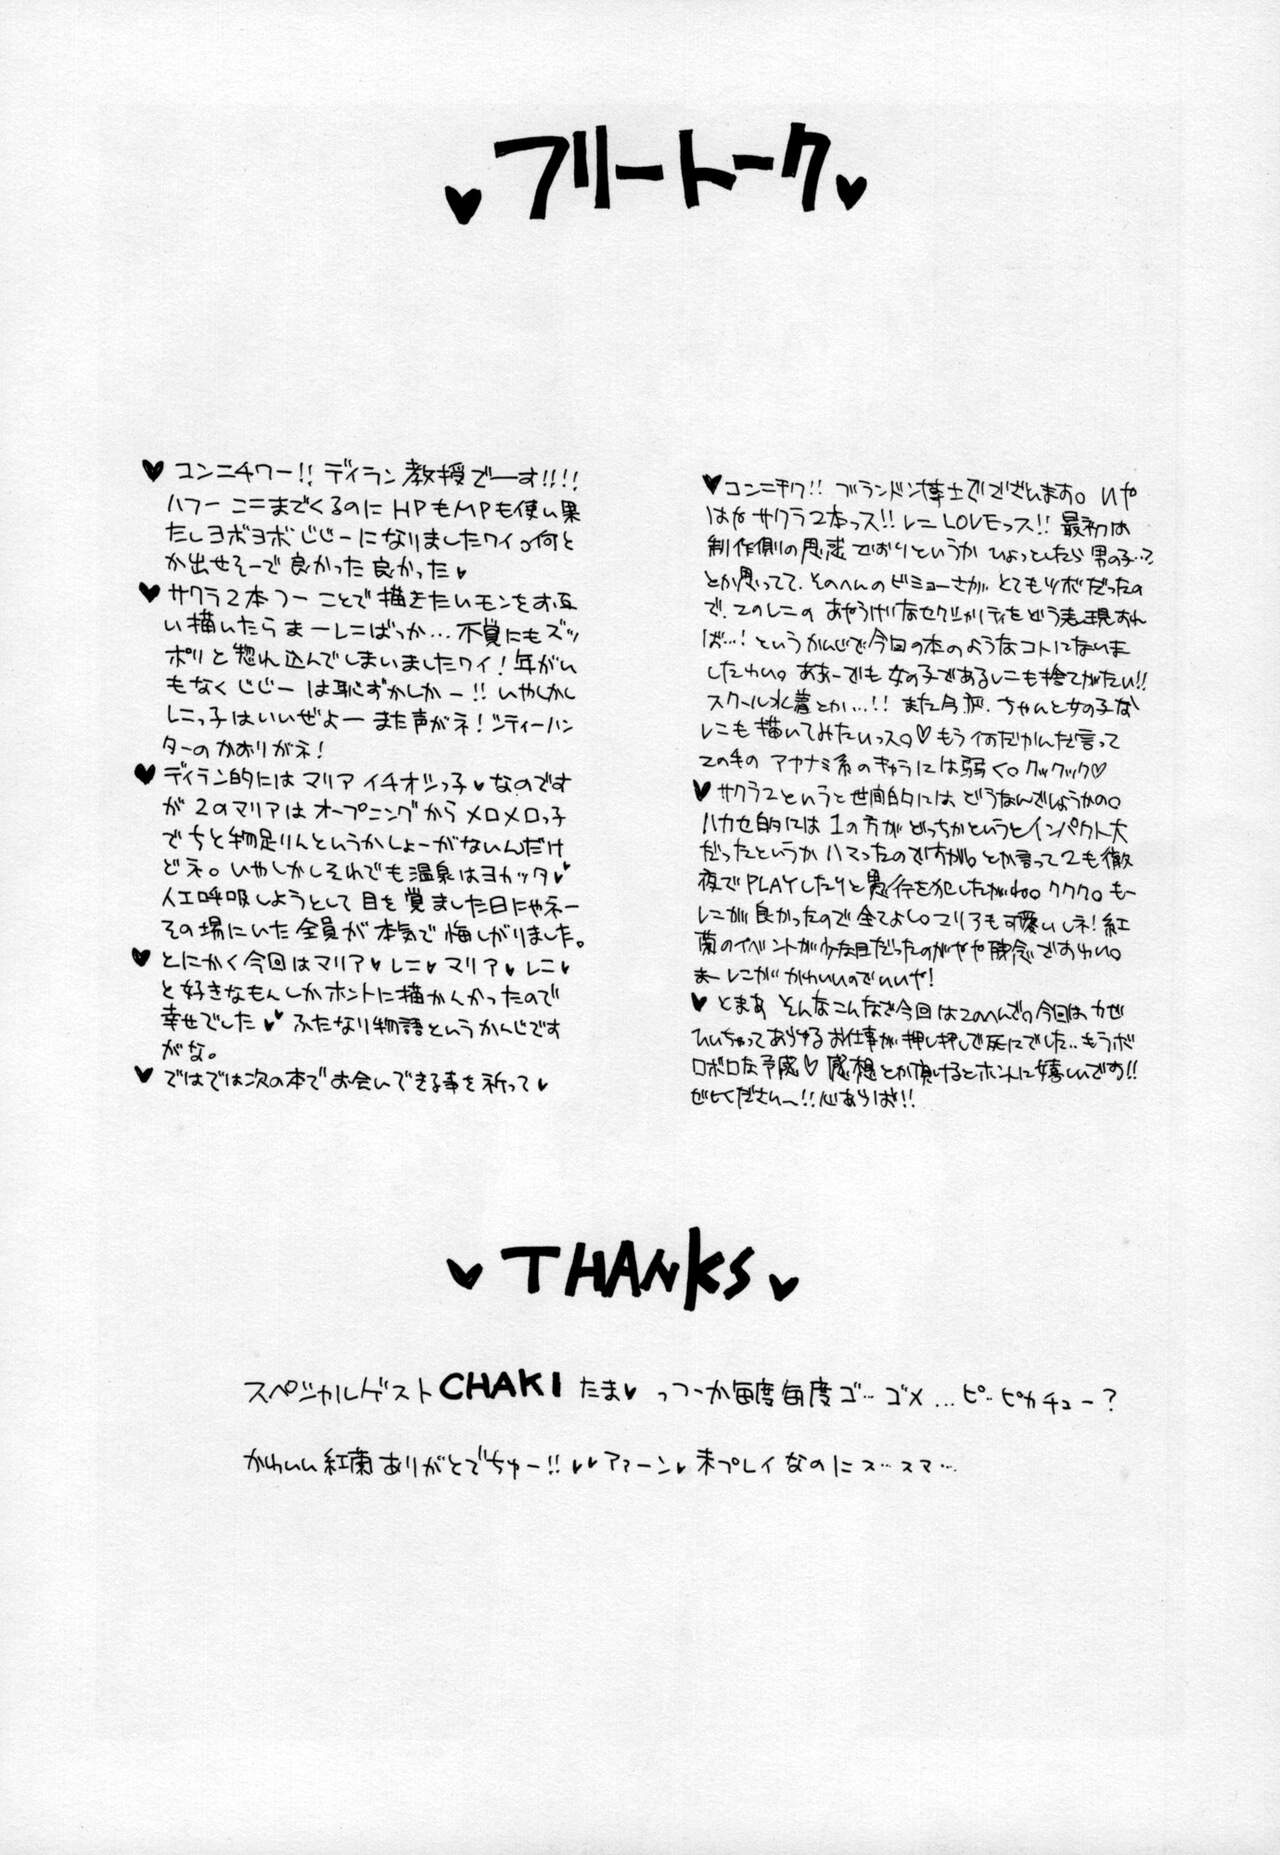 ♥フリートーク♥
♥ コンニチワー!! ディラン教授でーす!!!!
ハフー ここまでくるのに HPもMPも使い果
たしヨボヨボじじーになりましたワイ。何と
か出せそーで良かった良かった♥
♥ サクラ2本つーことで描きたいモンをお互
い描いたら まーレニばっか…不覚にもズッ
ポリと惚れ込んでしまいましたワイ!年がい
もなくじじーは恥ずかしかー!! いやしかし
レニっ子はいいぜよー また声がネ!シティーハン
ターのかおりがネ!
♥ ディラン的には マリア イチオシっ子♥なのです
が 2のマリアはオープニングからメロメロっ子
でちと物足りんというかしょーがないんだけ
どネ。いやしかしそれでも温泉はヨカッタ♥♥
人工呼吸しようとして目を覚ました日にゃネー
その場にいた全員が本気で悔しがりました。
♥ とにかく今回はマリア♥レニ♥マリア♥レニ♥
と好きなもんしかホントに描かんかったので
幸せでした♥♥ ふたなり物語というかんじです
がな。
♥ ではでは次の本でお会いできる事を祈って♥
♥コンニチワ!! ブランドン博士でございます。いや
はやサクラ2本っス!! レニLOVEっス!! 最初は
制作側の思惑どおりというか ひょっとしたら男の子…?
とか思ってて、そのへんのビミョーさが、とてもツボだったの
で、このレニの あやうげなセクシャリティをどう表現すれ
ば…!というかんじで今回の本のようなコトになりま
したわい。ああーでも女の子であるレニも捨てがたい!!
スクール水着とか…!! また今度、ちゃんと女の子な
レニも描いてみたいっス。♥もう何だかんだ言って
この手の アヤナミ系のキャラには弱く。クックック♥
♥サクラ2というと世間的には どうなんでしょうかの。
ハカセ的には 1の方がどっちかというとインパクト大
だったというか ハマったのですが。とか言って2も徹
夜でPLAYしたりと愚行を犯したがね。ククク。もー
レニが良かったので全てよし。マリアも可愛いしネ!紅
蘭のイベントが少な目だったのがやや残念ですわい。
まーレニが かわいいのでいいや!
♥ とまあ そんなこんなで今回はこのへんで。今回はカゼ
ひいちゃってあらゆるお仕事が押し押しで死にでした..もうボ
ロボロな予感♥ 感想とか頂けるとホントに嬉しいです!!
ぜひください〜!!心あらば!!
♥THANKS♥
スペシャルゲストCHAKIたま♥ っつーか毎度毎度ゴ…ゴメ…ピ…ピカチュー?
かわいい紅蘭ありがとでちゅー!!♥♥♥アァーン♥未プレイなのにス…スマ…